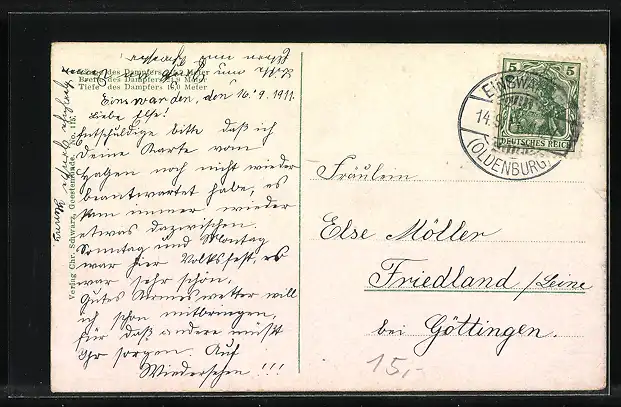 Länge des Dampfers Meter
Breite des Dampfers Meter
Tiefe des Dampfers Meter
Einswarden, den 10.9.1911.
Liebe Else!
Entschuldige bitte daß ich
Deine Karte vom
Hagen noch nicht wieder
beantwortet habe, es
kam immer wieder
etwas dazwischen.
Sonntag und Montag
war hier Volksfest, es
war sehr schön.
Gutes Wetter will
ich schon mitbringen,
für daß andere müßt
Ihr sorgen. Auf
Wiedersehen !!!
Verlag Chr. Schwarz, Geestemünde. No.
5 5
DEUTSCHES REICH
EINSWARDEN
14.9.
(OLDENBURG)
Fräulein
Else Möller
Friedland /Leine
bei Göttingen.
15,-